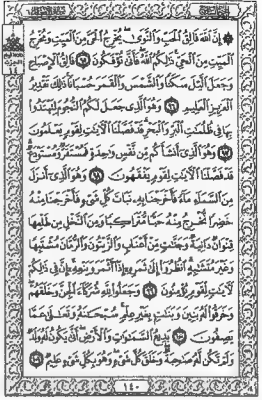 إِنَّ ٱللَّهَ فَالِقُ ٱلْحَبِّ وَٱلنَّوَىٰ يُخْرِجُ ٱلْحَيَّ مِنَ ٱلْمَيِّتِ وَمُخْرِجُ
ٱلْمَيِّتِ مِنَ ٱلْحَيِّ ذَٰلِكُمُ ٱللَّهُ فَأَنَّىٰ تُؤْفَكُونَ ٩٥ فَالِقُ ٱلْإِصْبَاحِ
وَجَعَلَ ٱلَّيْلَ سَكَنًا وَٱلشَّمْسَ وَٱلْقَمَرَ حُسْبَانًا ذَٰلِكَ تَقْدِيرُ
ٱلْعَزِيزِ ٱلْعَلِيمِ ٩٦ وَهُوَ ٱلَّذِي جَعَلَ لَكُمُ ٱلنُّجُومَ لِتَهْتَدُوا۟
بِهَا فِي ظُلُمَٰتِ ٱلْبَرِّ وَٱلْبَحْرِ قَدْ فَصَّلْنَا ٱلْءَايَٰتِ لِقَوْمٍ يَعْلَمُونَ
٩٧ وَهُوَ ٱلَّذِي أَنشَأَكُم مِّن نَّفْسٍ وَٰحِدَةٍ فَمُسْتَقَرٌّ وَمُسْتَوْدَعٌ
قَدْ فَصَّلْنَا ٱلْءَايَٰتِ لِقَوْمٍ يَفْقَهُونَ ٩٨ وَهُوَ ٱلَّذِي أَنزَلَ
مِنَ ٱلسَّمَآءِ مَآءً فَأَخْرَجْنَا بِهِۦ نَبَاتَ كُلِّ شَيْءٍ فَأَخْرَجْنَا مِنْهُ
خَضِرًا نُّخْرِجُ مِنْهُ حَبًّا مُّتَرَاكِبًا وَمِنَ ٱلنَّخْلِ مِن طَلْعِهَا
قِنْوَانٌ دَانِيَةٌ وَجَنَّٰتٍ مِّنْ أَعْنَابٍ وَٱلزَّيْتُونَ وَٱلرُّمَّانَ مُشْتَبِهًا
وَغَيْرَ مُتَشَٰبِهٍ ٱنظُرُوٓا۟ إِلَىٰ ثَمَرِهِۦٓ إِذَآ أَثْمَرَ وَيَنْعِهِۦٓ إِنَّ فِي ذَٰلِكُمْ
لَءَايَٰتٍ لِّقَوْمٍ يُؤْمِنُونَ ٩٩ وَجَعَلُوا۟ لِلَّهِ شُرَكَآءَ ٱلْجِنَّ وَخَلَقَهُمْ
وَخَرَقُوا۟ لَهُۥ بَنِينَ وَبَنَٰتٍۭ بِغَيْرِ عِلْمٍ سُبْحَٰنَهُۥ وَتَعَٰلَىٰ عَمَّا
يَصِفُونَ ١٠٠ بَدِيعُ ٱلسَّمَٰوَٰتِ وَٱلْأَرْضِ أَنَّىٰ يَكُونُ لَهُۥ وَلَدٌ
وَلَمْ تَكُن لَّهُۥ صَٰحِبَةٌ وَخَلَقَ كُلَّ شَيْءٍ وَهُوَ بِكُلِّ شَيْءٍ عَلِيمٌ ١٠١
١٤٠